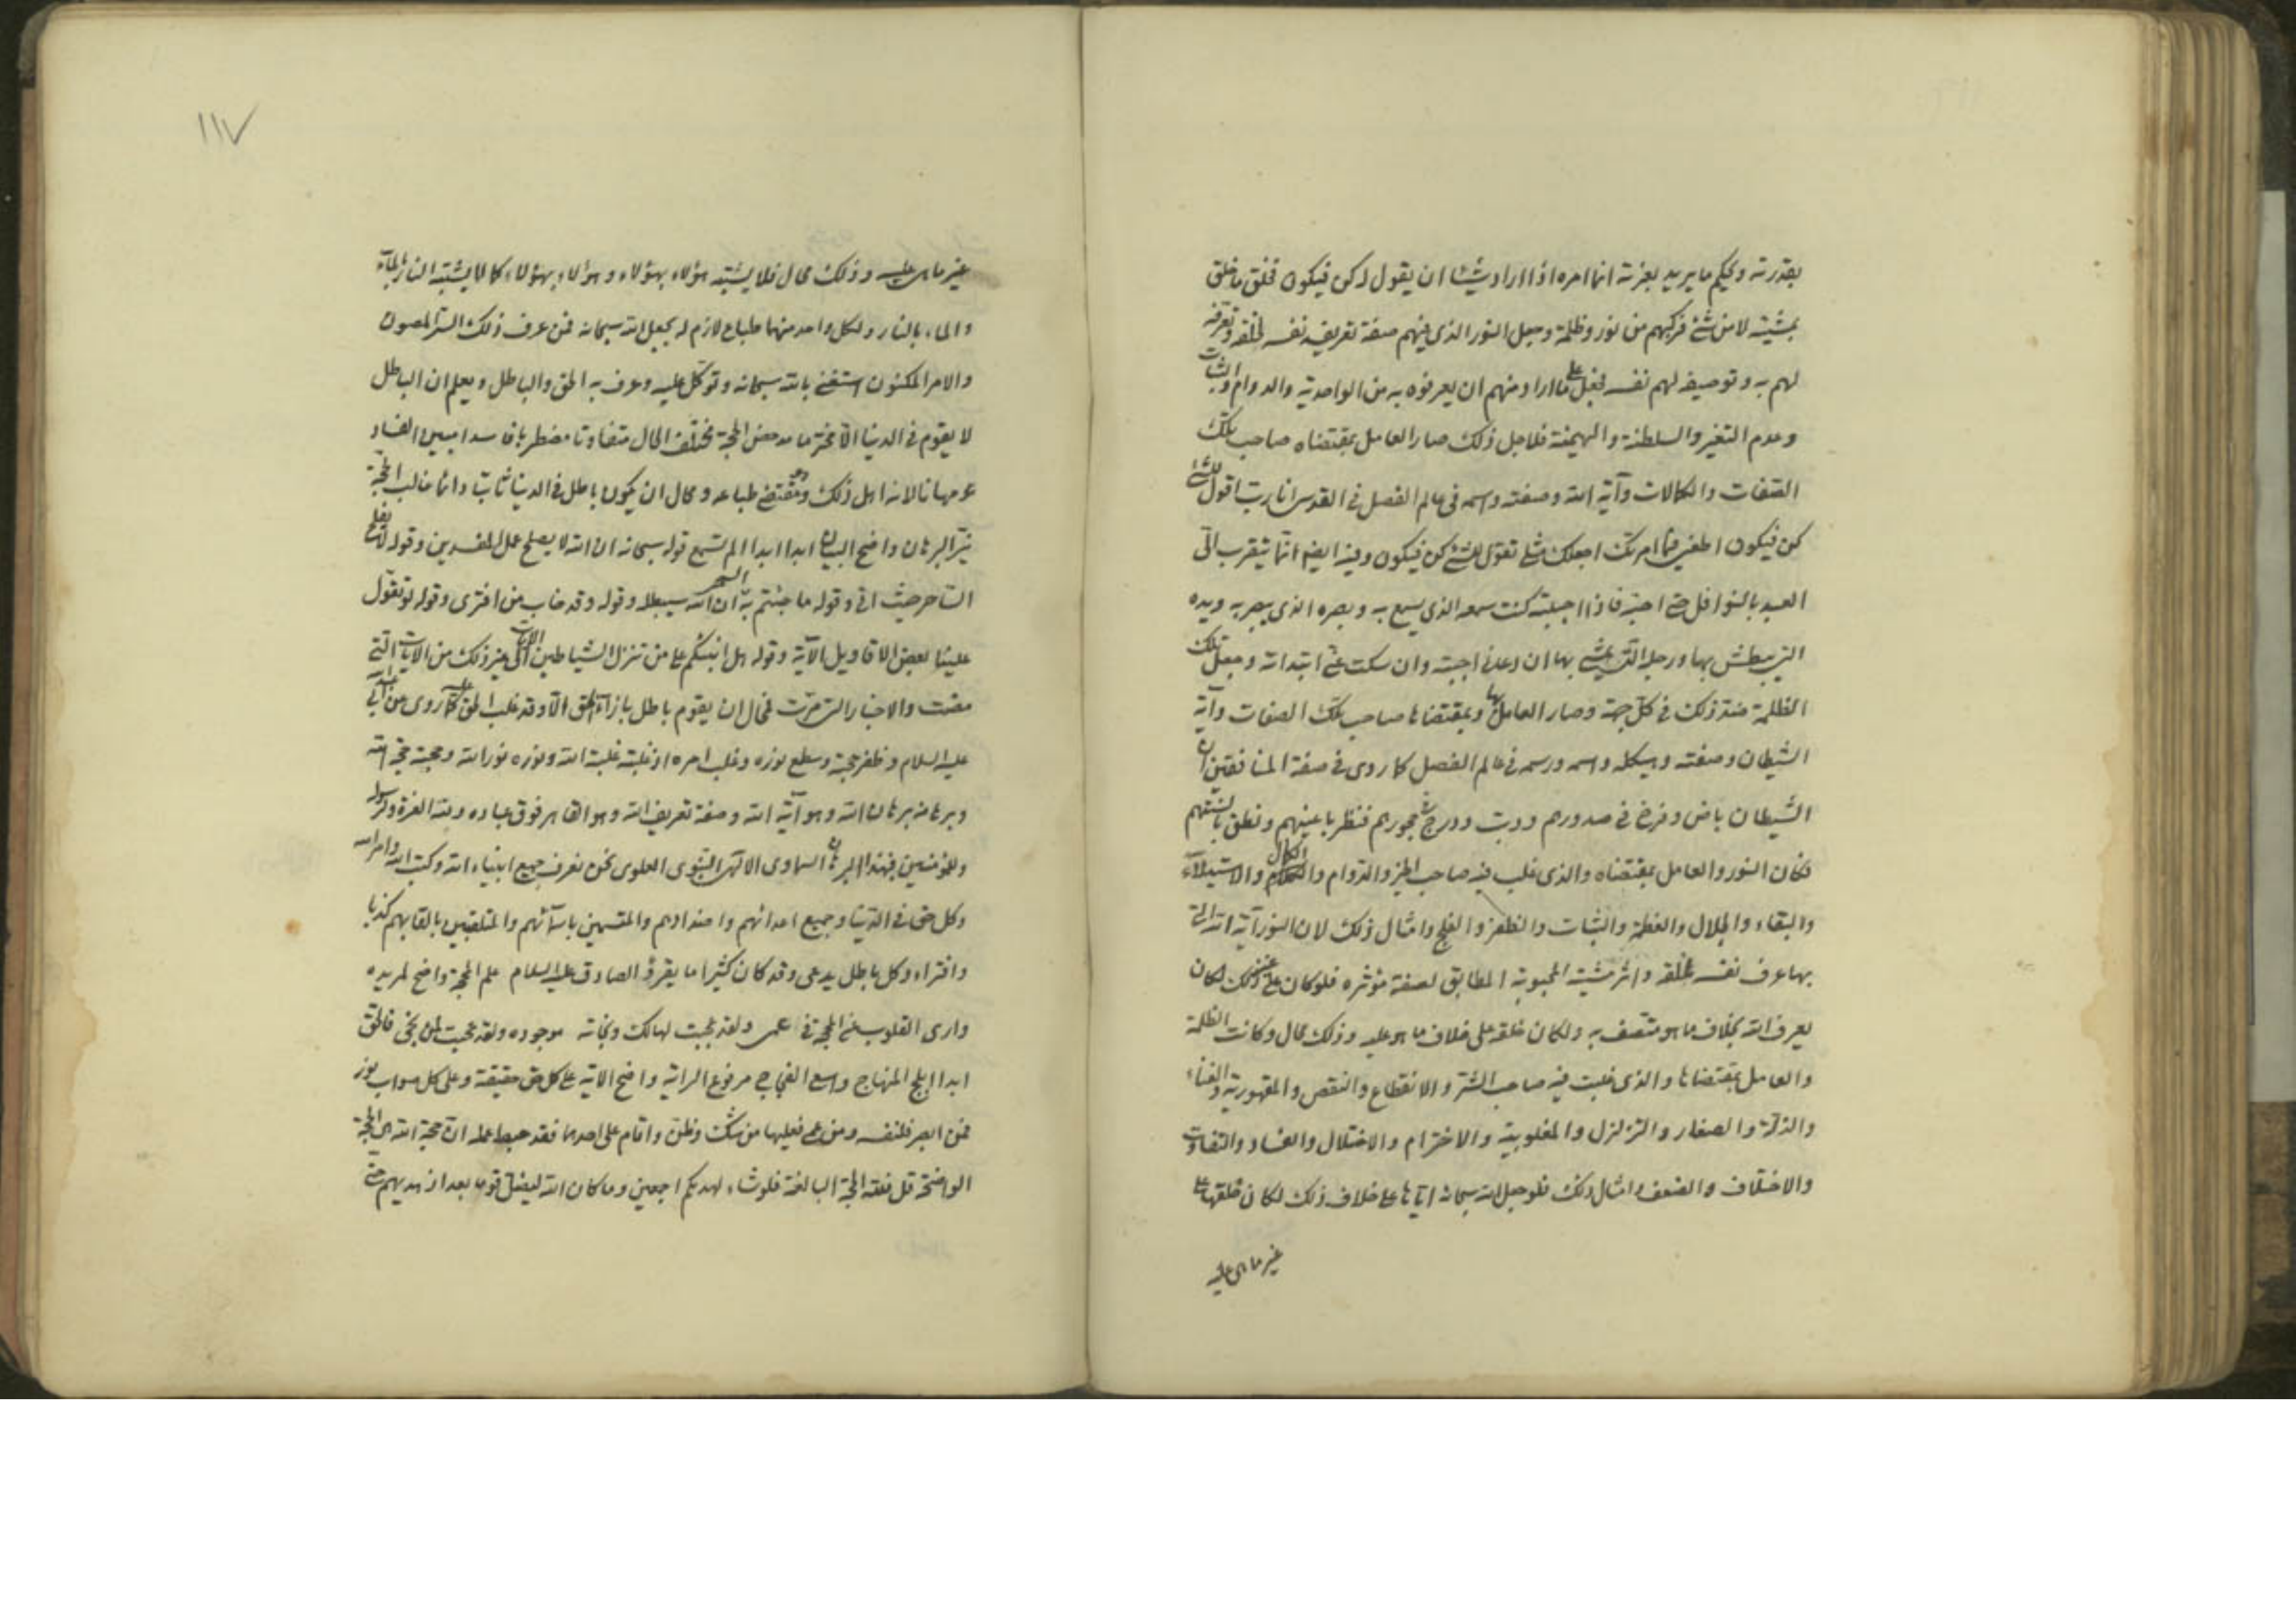 بقدرته ويحكم ما يريد بعزته انما امره اذا اراد شيئا ان يقول له كن فيكون فخلق ما خلق
بمشيته لا من شئ فركبهم من نور وظلمة وجعل النور الذي فيهم صفة تعريف نفسه لخلقه وتعرفه
لهم به وتوصيفه لهم نفسه فجعل على ما اراد منهم ان يعرفوه به من الواحدية والدوام والثبات
وعدم التغير والسلطنة والهيمنة فلاجل ذلك صار العامل بمقتضاه صاحب تلك
الصفات والكمالات وآية الله وصفته واسمه في عالم الفصل في القدسي انا رب اقول للشئ
كن فيكون اطعني فيما امرتك اجعلك مثلي تقول للشئ كن فيكون وفيه ايضا انما يتقرب الي
العبد بالنوافل حتى احبه فاذا احببته كنت سمعه الذي يسمع به وبصره الذي يبصر به ويده
التي يبطش بها ورجله التي يمشي بها ان دعاني اجبته وان سكت عني ابتدأته وجعل تلك
الظلمة ضد ذلك في كل جهة وصار العامل بها وبمقتضاها صاحب تلك الصفات وآية
الشيطان وصفته وهيكله واسمه ورسمه في عالم الفصل كما روي في صفة المنافقين ان
الشيطان باض وفرخ في صدورهم ودب ودرج في حجورهم فنظر باعينهم ونطق بالسنتهم
فكان النور والعامل بمقتضاه والذي غلب فيه صاحب الخير والدوام والكمال والاستيلاء
والبقاء والجلال والعظمة والثبات والظفر والفلج وامثال ذلك لان النور آية الله التي
بها عرف نفسه لخلقه واثر مشيته المحبوبة المطابق لصفة مؤثره فلو كان على غير ذلك لكان
يعرف الله بخلاف ما هو متصف به ولكان خلقه على خلاف ما هو عليه وذلك محال وكانت الظلمة
والعامل بمقتضاها والذي غلبت فيه صاحب الشر والانقطاع والنقص والمقهورية والفناء
والذلة والصغار والتزلزل والمغلوبية والاخترام والاختلال والفساد والتفاوت
والاختلاف والضعف وامثال ذلك فلو جعل الله سبحانه اياها على خلاف ذلك لكان خلقها على
غير ما هي عليه
١١٧
غير ما هي عليه وذلك محال فلا يشتبه هؤلاء بهؤلاء وهؤلاء بهؤلاء كما لا يشتبه النار بالماء
والماء بالنار ولكل واحد منهما طباع لازم له بجعل الله سبحانه فمن عرف ذلك السر المصون
والامر المكنون استغنى بالله سبحانه وتوكل عليه وعرف به الحق والباطل ويعلم ان الباطل
لا يقوم في الدنيا الا مختر ما مدحض الحجة مختلف الحال متفاوتا مضطربا فاسدا مبين الفساد
لانه اهل ذلك ومقتضى طباعه ومحال ان يكون باطل في الدنيا ثابتا دائما غالب الحجة
نير البرهان واضح البيان ابدا ابدا الم تسمع قوله سبحانه ان الله لا يصلح عمل المفسدين وقوله لا يفلح
الساحر حيث اتى وقوله ما جئتم به السحر ان الله سيبطله وقوله وقد خاب من افترى وقوله لو تقول
علينا بعض الاقاويل الآية وقوله هل انبئكم على من تنزل الشياطين الآيات الى غير ذلك من الآيات التي
مضت والاخبار التي مرت فمحال ان يقوم باطل بازاء الحق الا وقد غلب الحق عليه كما روي عن ابي عبد الله
عليه السلام وظفر حجته وسطع نوره وغلب امره اذ غلبته غلبة الله ونوره نور الله وحجته حجة الله
وبرهانه برهان الله وهو آية الله وصفة تعريف الله وهو القاهر فوق عباده ولله العزة ولرسوله
وللمؤمنين فبهذا البرهان السماوي الالهي النبوي العلوي نحن نعرف جميع انبياء الله وكتب الله وامر الله
وكل حق في الدنيا وجميع اعدائهم واضدادهم والمتسمين باسمائهم والمتلقبين بالقابهم كذبا
وافتراء وكل باطل يدعى وقد كان كثيرا ما يقرؤ الصادق عليه السلام علم المحجة واضح لمريده
وارى القلوب عن المحجة في عمى ولقد عجبت لهالك ونجاته موجوده ولقد عجبت لمن نجى فالحق
ابدا ابلج المنهاج واسع الفجاج مرفوع الراية واضح الآية على كل حق حقيقة وعلى كل صواب نور
فمن ابصر فلنفسه ومن عمي فعليها من شك وظن واقام على احدهما فقد حبط عمله ان حجة الله هي الحجة
الواضحة قل فلله الحجة البالغة فلو شاء لهديكم اجمعين وما كان الله ليضل قوما بعد اذ هديهم حتى